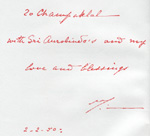 To Champaklal
with Sri Aurobindo's and my
love and blessings
2-2-50.